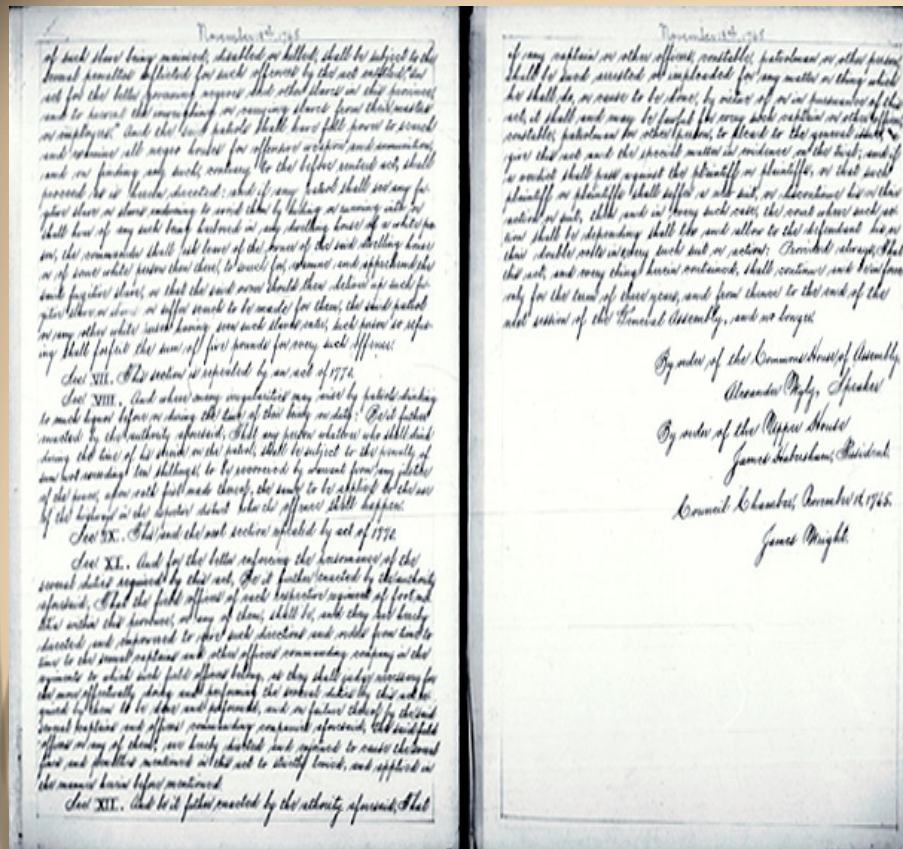 November 18th 1765
of such slave being maimed, disabled or killed, shall be subject to the
several penalties inflicted for such offences by the act entitled, "An
act for the better governing negroes and other slaves in this province,
and to prevent the inveigling or carrying slaves from their masters
or employers." And the said patrols shall have full power to search
and examine all negro houses for offensive weapons and ammunition,
and on finding any such, contrary to the before recited act, shall
proceed as is herein directed: and if any patrol shall see any fu-
gitive slave or slaves endeavoring to avoid them by hiding or running into or
shall hear of any such being harbored in any dwelling house of a white per
son, the commander shall ask leave of the owner of the said dwelling house
or of some white person then there, to search for, examine and apprehend the
said fugitive slave, or that the said owner should then deliver up such fu-
gitive slave or slaves or suffer search to be made for them, the said patrol
or any other white person having seen such slaves enter, such person so refus-
ing shall forfeit the sum of five pounds for every such offence.
Sec VII. This section is repealed by an act of
Sec VIII. And where many irregularities may arise by patrols drinking
to much liquor before or during the time of their being on duty: Be it further
enacted by the authority aforesaid, That any person whatever who shall drink
during the time of his service on the patrol, shall be subject to the penalty of
sum not exceeding ten shillings, to be recovered by warrant from any justice
of the peace, upon oath first made thereof, the same to be applied to the use
of the highways in the district where the offence shall happen.
Sec IX. This and the next section repealed by act of
Sec XI. And for the better enforcing the performance of the
several duties required by this act, Be it further enacted by the authority
aforesaid, That the field officers of each respective regiment of foot mi
litia within this province, or any of them, shall be, and they are hereby
directed and empowered to give such directions and orders from time to
time to the several captains and other officers commanding company in the
regiments to which such field officers belong, as they shall judge necessary for
the more effectually doing and performing the several duties by this act re-
quired by them to be done and performed, and on failure thereof by the said
several captains and officers commanding companies aforesaid, the said field
officers or any of them, are hereby directed and enjoined to cause the several
fines and penalties mentioned in this act to strictly levied, and applied in
the manner herein before mentioned.
Sec XII. And be it father enacted by the athority aforesaid, That
November 18th 1765
if any captain or other officer, constable, patrolman or other person
shall be sued arrested or impleaded for any matter or thing which
he shall do, or cause to be done, by virtue of or in pursuance of this
act, it shall and may be lawful for every such captain or other officer
constable, patrolman or other person, to plead to the general issue, &
give this act and the special matter in evidence on the trial; and if
a verdict shall pass against the plaintiff or plaintiffs, or that such
plaintiff or plaintiffs shall suffer a non suit, or discontinue his or their
action or suit, then and in every such case, the court where such ac-
tion shall be depending shall tax and allow to the defendant his or
their double costs in every such suit or action; Provided always, That
this act, and every thing herein contained, shall continue and be in force
only for the term of three years, and from thence to the end of the
next session of the General Assembly, and no longer.
By order of the Commons House of Assembly,
Alexander Wyly, Speaker
By order of the Upper House
James Habersham, President.
Council Chamber, November 18, 1765.
James Wright.